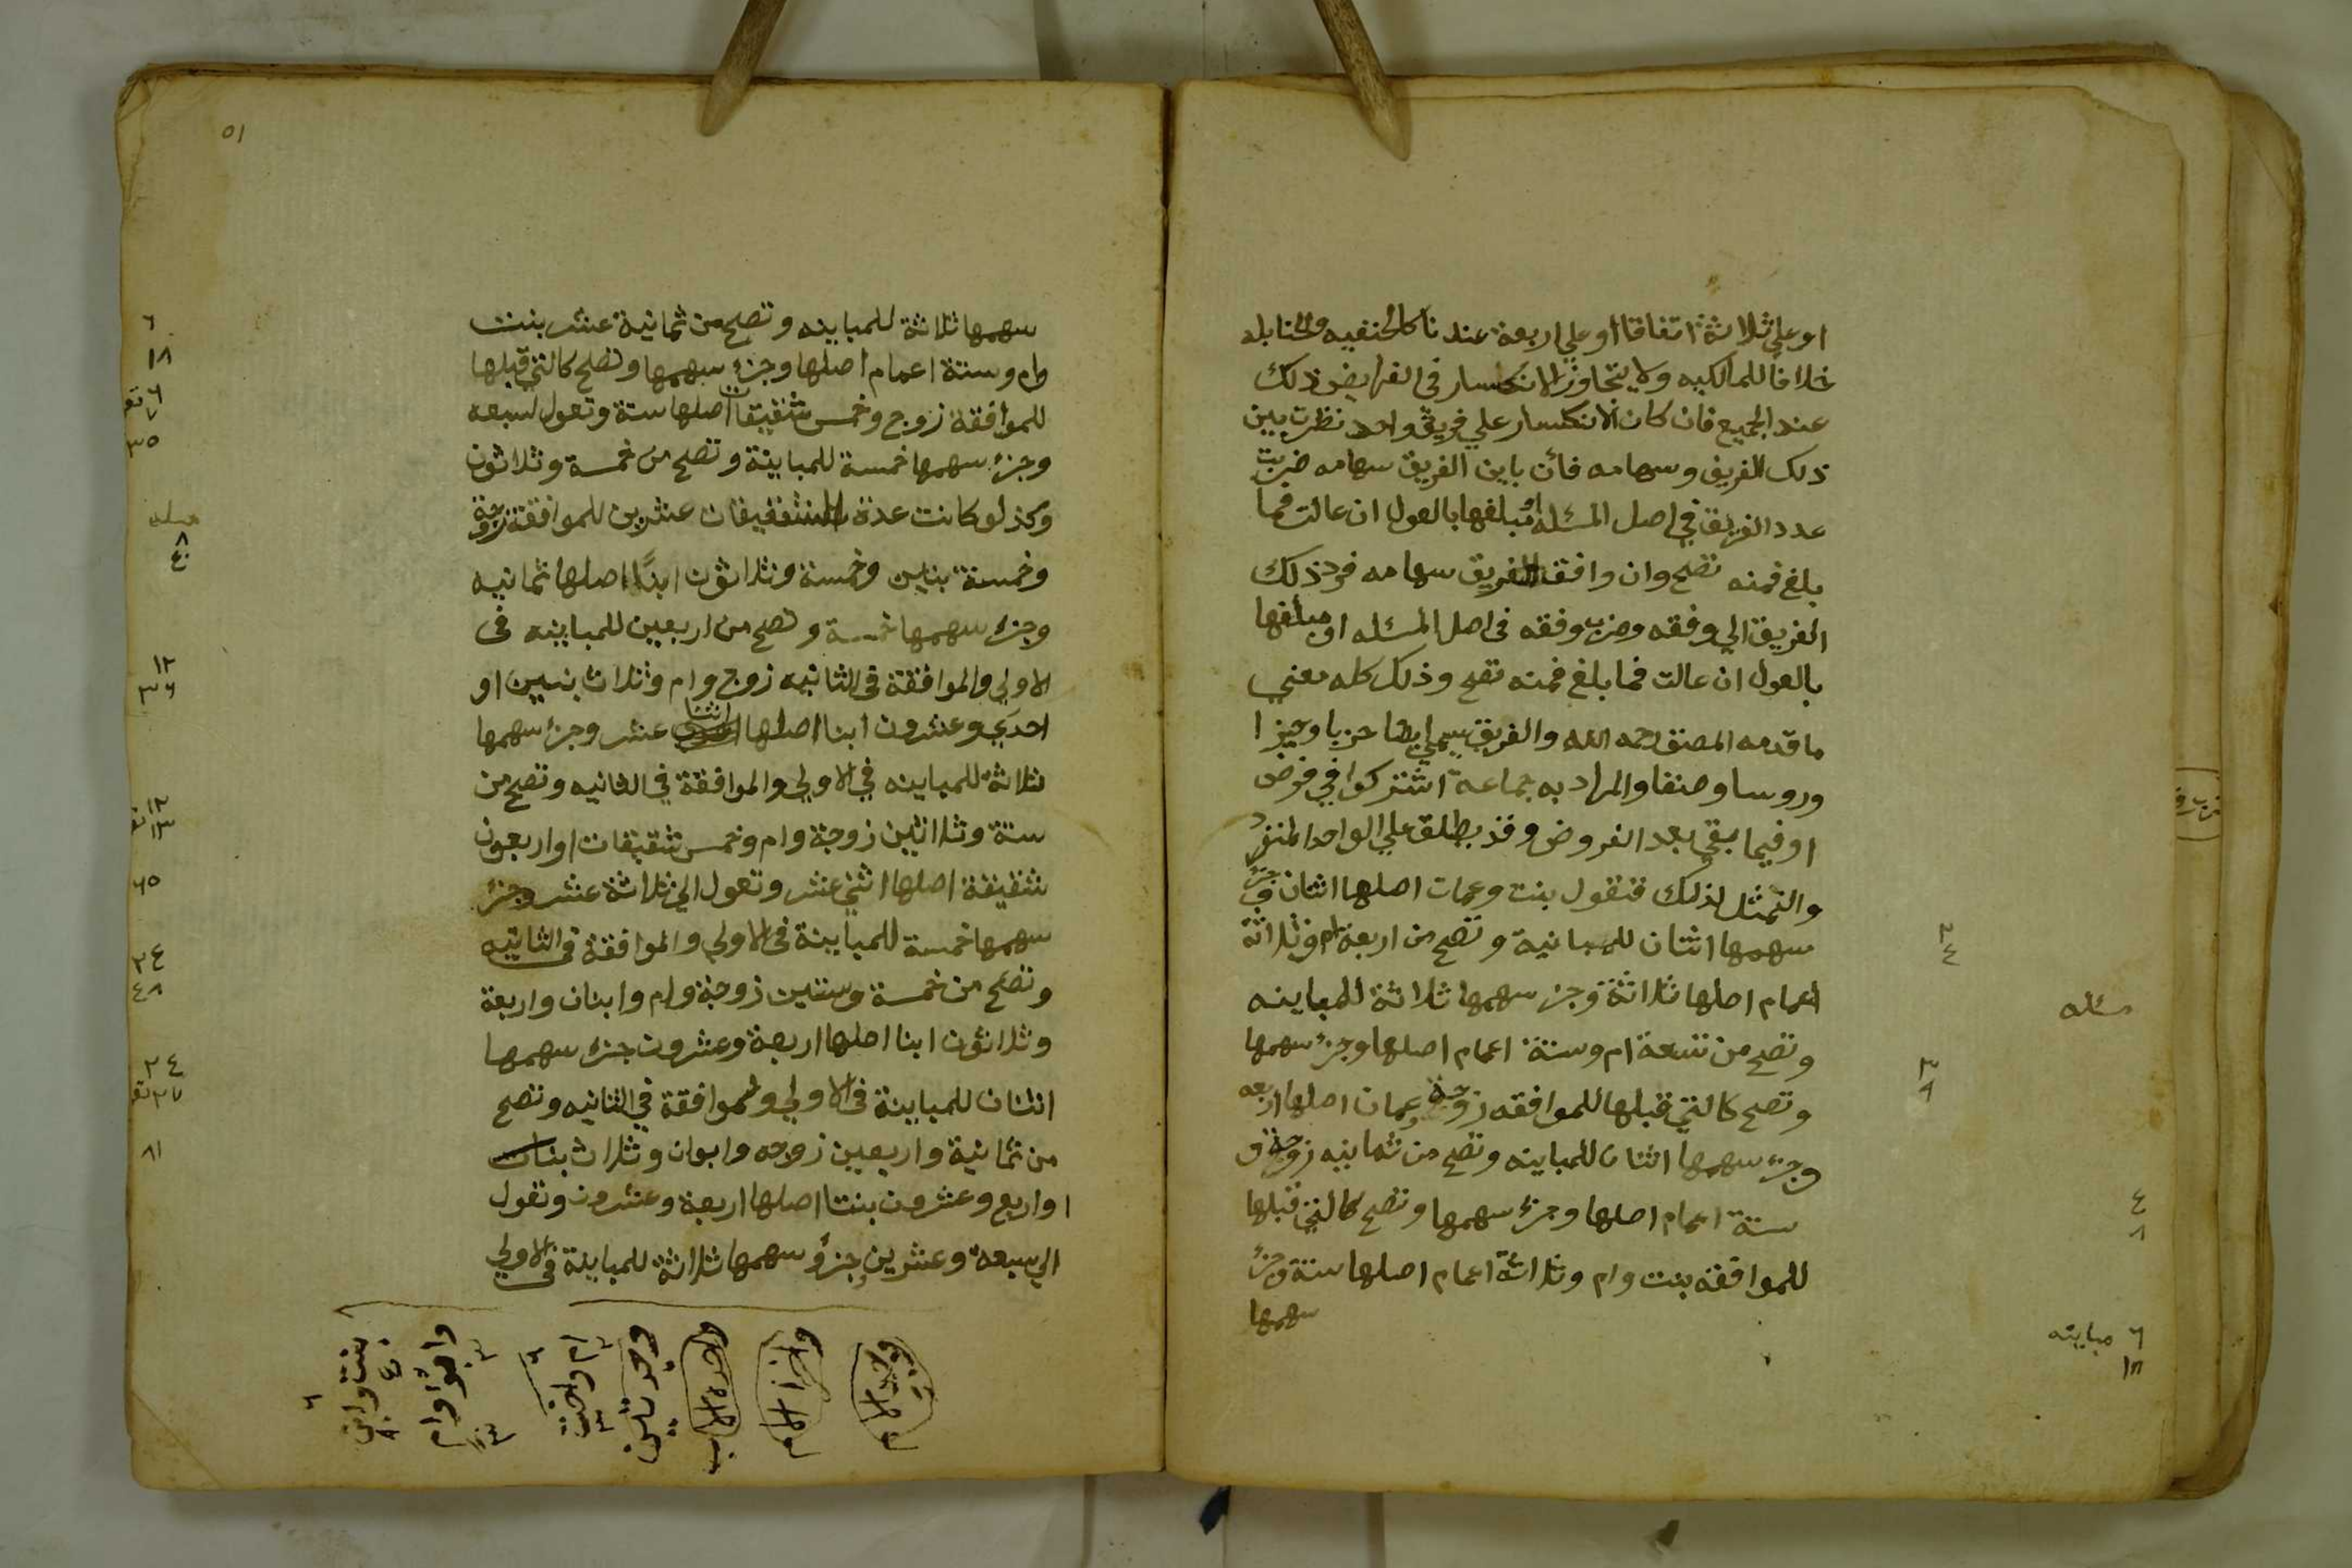 او علي ثلاثة اتفاقا او علي اربعة عندنا كالحنفيه والحنابله
خلافا للمالكيه ولا يتجاوز الانكسار في الفرايض ذلك
عند الجميع فان كان الانكسار علي فريق واحد نظرت بين
ذلك الفريق وسهامه فان باين الفريق سهامه ضربت
عدد الفريق في اصل المسئلة او مبلغها بالعول ان عالت فما
بلغ فمنه تصح وان وافق الفريق سهامه فرد ذلك
الفريق الي وفقه وضرب وفقه في اصل المسئله او مبلغها
بالعول ان عالت فما بلغ فمنه تصح وذلك كله معني
ما قدمه المصنف رحمه الله والفريق يسمي ايضا حزبا وحيزا
وروسا وصنفا والمراد به جماعة اشتركوا في فرض
او فيما بقي بعد الفروض وقد يطلق علي الواحد المنفرد
والنمثل لذلك فنقول بنت وعمات اصلها اثنان وجزء
سهمها اثنان للمبانية وتصح من اربعة ام وثلاثة
اعمام اصلها ثلاثة وجزء سهمها ثلاثة للمباينه
وتصح من تسعة ام وستة اعمام اصلها وجزء سهمها
وتصح كالتي قبلها للموافقه زوجة وعمان اصلها اربعه
وجزء سهمها اثنان للمباينه وتصح من ثمانيه زوجة و
ستة اعمام اصلها وجزء سهمها وتصح كالتي قبلها
للموافقه بنت وام وثلاثة اعمام اصلها ستة وجزء
سهمها
٢
٤
مسئله
٣
٩
٤
٨
٦ مباينه
١٨
٥١
سهمها ثلاثة للمباينه وتصح من ثمانية عشر بنت
وام وستة اعمام اصلها وجزء سهمها وتصح كالتي قبلها
للموافقة زوج وخمس شقيقات اصلها ستة وتعول لسبعه
وجزء سهمها خمسة للمباينة وتصح من خمسة وثلاثون
وكذلو كانت عدة الشقيقات عشرين للموافقة زوجة
وخمسة بنين وخمسة وثلاثون ابنا اصلها ثمانيه
وجزء سهمها خمسة وتصح من اربعين للمباينه في
الاولي والموافقة في الثانيه زوج وام وثلاث بنين او
احدي وعشرون ابنا اصلها اثنا عشر وجزء سهمها
ثلاثة للمباينه في الاولي والموافقة في الثانيه وتصح من
ستة وثلاثين زوجة وام وخمس شقيقات او اربعون
شقيقة اصلها اثني عشر وتعول الي ثلاثة عشر وجزء
سهمها خمسة للمباينة في الاولي والموافقة في الثانيه
وتصح من خمسة وستين زوجة وام وابنان واربعة
وثلاثون ابنا اصلها اربعة وعشرون جزء سهمها
اثنان للمباينة في الاولي وللموافقة في الثانيه وتصح
من ثمانية واربعين زوجه وابوان وثلاث بنات
او اربع وعشرون بنتا اصلها اربعة وعشرون وتعول
الي سبعة وعشرين وجزؤ سهمها ثلاثة للمباينة في الاولي
٦
١٨
٦
٧ تعو
٣٥
مسئله
٨
٤٠
١٢
٣٦
١٢
١٣ تعو
٦٥
٢٤
٤٨
٢٤
٢٧ تعو
٨١
ام واخت
بنت وابن